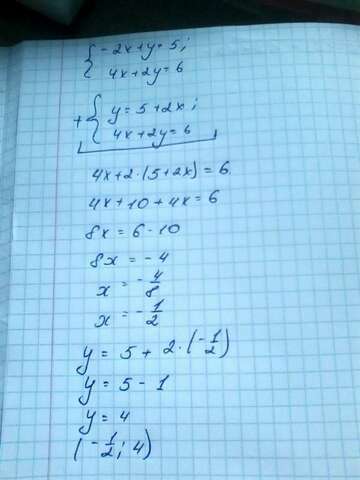 { -2x+y=5;
4x+2y=6
+{ y=5+2x;
4x+2y=6
4x+2·(5+2x)=6
4x+10+4x=6
8x=6-10
8x=-4
x=-4/8
x=-1/2
y=5+2·(-1/2)
y=5-1
y=4
(-1/2; 4)